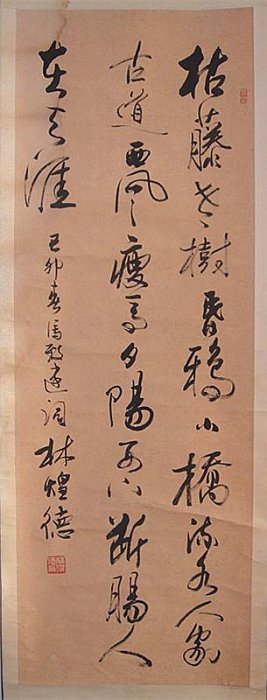 枯藤老樹昏鴉小橋流水人家
古道西風瘦馬夕陽西下斷腸人
在天涯
己卯春馬致遠詞林煌德